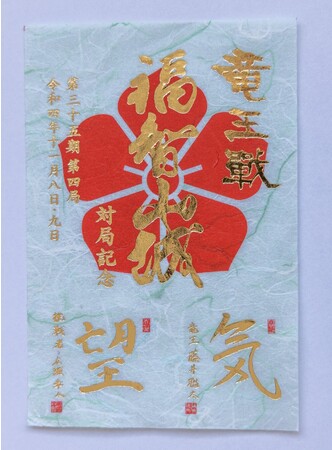 竜王戰
福智山城
対局記念
第三十五期 第四局
令和四年十一月八日・九日
気
竜王 藤井聡太
望